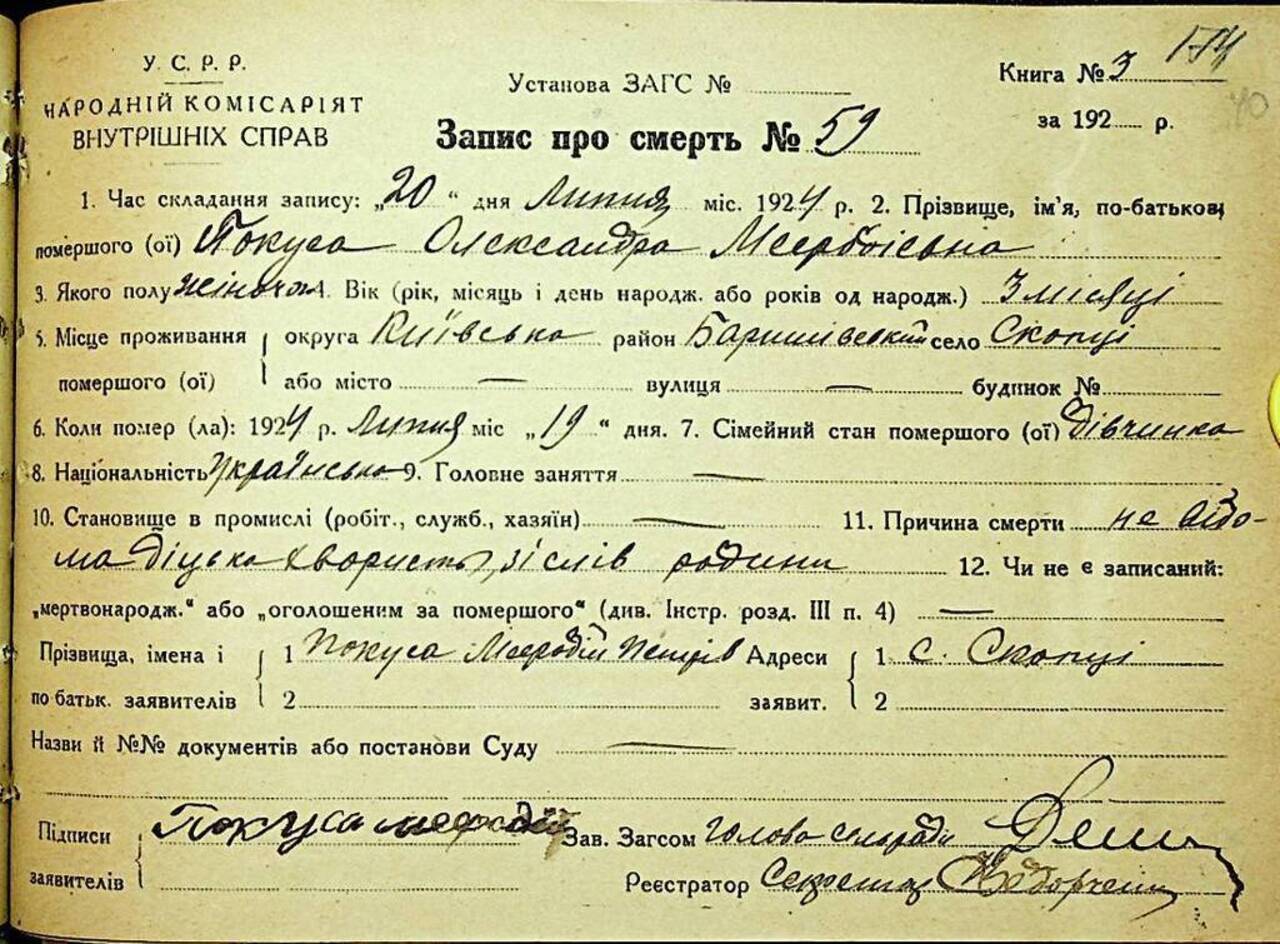 174
У. С. Р. Р.
НАРОДНІЙ КОМІСАРІЯТ
ВНУТРІШНІХ СПРАВ
Установа ЗАГС №
Книга № 3
за 192 р.
Запис про смерть № 59
1. Час складання запису: „20“ дня Липня міс. 1924 р. 2. Прізвище, ім'я, по-батькові
помершого (ої) Покуса Олександра
3. Якого полу жіночого 4. Вік (рік, місяць і день народж. або років од народж.) 3 місяці
5. Місце проживання округа Київська район Баришівський село Скопці
помершого (ої) або місто — вулиця — будинок №
6. Коли помер (ла): 1924 р. Липня міс „19“ дня. 7. Сімейний стан помершого (ої) дівчинка
8. Національність Українська 9. Головне заняття —
10. Становище в промислі (робіт., служб., хазяїн) — 11. Причина смерти не відо-
ма діцька хвористь, зі слів родини 12. Чи не є записаний:
„мертвонародж.“ або „оголошеним за помершого“ (див. Інстр. розд. III п. 4) —
Прізвища, імена і 1 Покуса Адреси 1 с. Скопці
по батьк. заявителів 2 заявит. 2
Назви й №№ документів або постанови Суду —
Підписи Покуса Зав. Загсом Голова сельради
заявителів Реєстратор Секретар